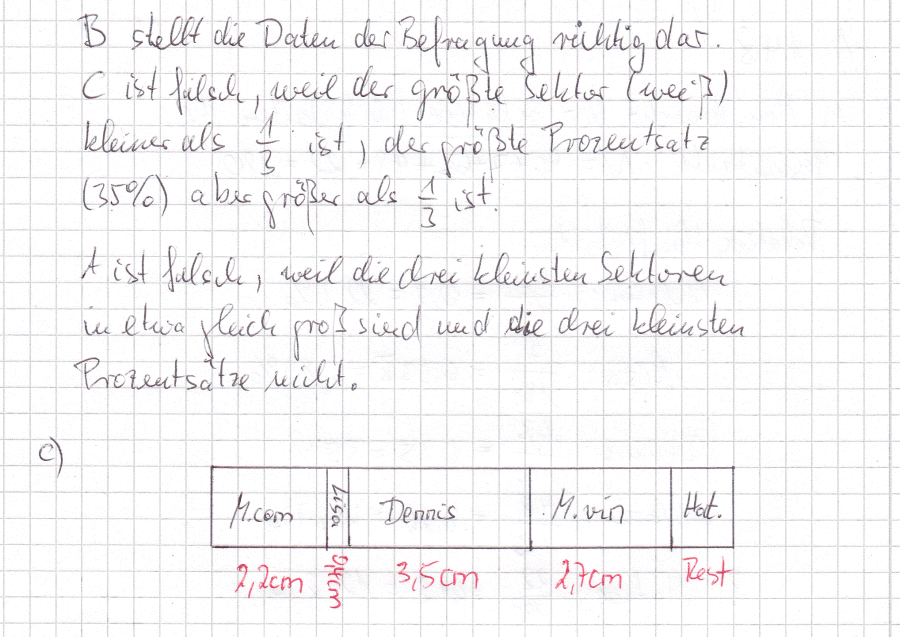 B stellt die Daten der Befragung richtig dar.
C ist falsch, weil der größte Sektor (weiß)
kleiner als 1/3 ist, der größte Prozentsatz
(35%) aber größer als 1/3 ist.
A ist falsch, weil die drei kleinsten Sektoren
in etwa gleich groß sind und die drei kleinsten
Prozentsätze nicht.
c)
M.com Lisa Dennis M.vin Hat.
2,2cm 0,4cm 3,5cm 2,7cm Rest